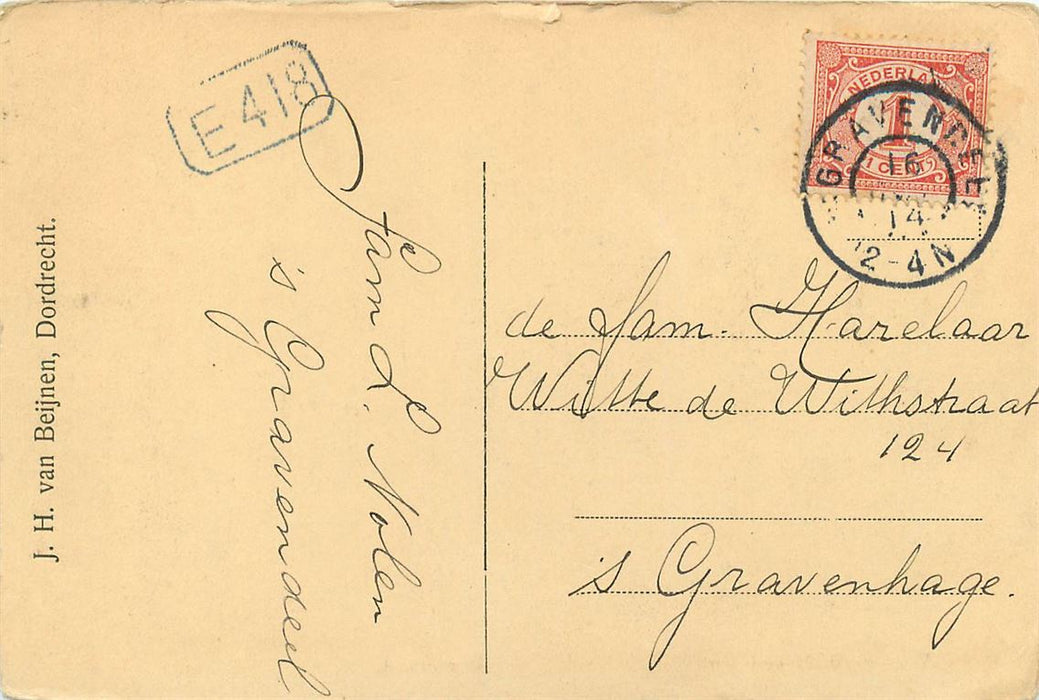 E 418
J. H. van Beijnen, Dordrecht.
Fam L. Nolen
's Gravendeel
NEDERLAND
1
1 CENT
GRAVENDEEL
16
14
2-4N
de fam. Harelaar
Witte de Withstraat
124
's Gravenhage.